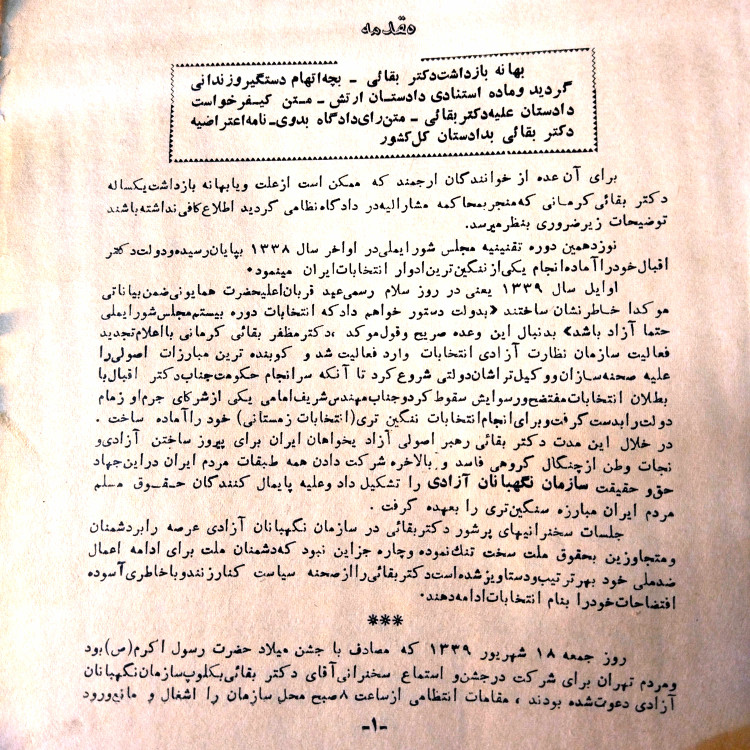 مقدمه
بهانه بازداشت دکتر بقائی ـ بچه اتهام دستگیر و زندانی
گردید و ماده استنادی دادستان ارتش ـ متن کیفر خواست
دادستان علیه دکتر بقائی ـ متن رای دادگاه بدوی ـ نامه اعتراضیه
دکتر بقائی بدادستان کل کشور
برای آن عده از خوانندگان ارجمند که ممکن است از علت و یا بهانه بازداشت یکساله
دکتر بقائی کرمانی که منجر بمحاکمه مشارالیه در دادگاه نظامی گردید اطلاع کافی نداشته باشند
توضیحات زیر ضروری بنظر میرسد.
نوزدهمین دوره تقنینیه مجلس شورایملی در اواخر سال ۱۳۳۸ بپایان رسیده و دولت دکتر
اقبال خود را آماده انجام یکی از ننگین ترین ادوار انتخابات ایران مینمود.
اوایل سال ۱۳۳۹ یعنی در روز سلام رسمی عید قربان اعلیحضرت همایونی ضمن بیاناتی
موکدا خاطر نشان ساختند «بدولت دستور خواهم داد که انتخابات دوره بیستم مجلس شورایملی
حتما آزاد باشد» بدنبال این وعده صریح و قول موکد ، دکتر مظفر بقائی کرمانی با اعلام تجدید
فعالیت سازمان نظارت آزادی انتخابات وارد فعالیت شد و کوبنده ترین مبارزات اصولی را
علیه صحنه سازان و وکیل تراشان دولتی شروع کرد تا آنکه سرانجام حکومت جناب دکتر اقبال با
بطلان انتخابات مفتضح و رسوایش سقوط کرد و جناب مهندس شریف امامی یکی از شرکای جرم او زمام
دولت را بدست گرفت و برای انجام انتخابات ننگین تری (انتخابات زمستانی) خود را آماده ساخت .
در خلال این مدت دکتر بقائی رهبر اصولی آزاد یخواهان ایران برای پیروز ساختن آزادی و
نجات وطن از چنگال گروهی فاسد و بالاخره شرکت دادن همه طبقات مردم ایران در این جهاد
حق و حقیقت سازمان نگهبانان آزادی را تشکیل داد و علیه پایمال کنندگان حقوق مسلم
مردم ایران مبارزه سنگین تری را بعهده گرفت .
جلسات سخنرانیهای پرشور دکتر بقائی در سازمان نگهبانان آزادی عرصه را بر دشمنان
و متجاوزین بحقوق ملت سخت تنك نموده و چاره جز این نبود که دشمنان ملت برای ادامه اعمال
ضد ملی خود بهر ترتیب و دستاویز شده است دکتر بقائی را از صحنه سیاست کنار زنند و با خاطری آسوده
افتضاحات خود را بنام انتخابات ادامه دهند.
***
روز جمعه ۱۸ شهریور ۱۳۳۹ که مصادف با جشن میلاد حضرت رسول اکرم (ص) بود
و مردم تهران برای شرکت در جشن و استماع سخنرانی آقای دکتر بقائی بکلوپ سازمان نگهبانان
آزادی دعوت شده بودند ، مقامات انتظامی از ساعت ۸ صبح محل سازمان را اشغال و مانع ورود
-۱-